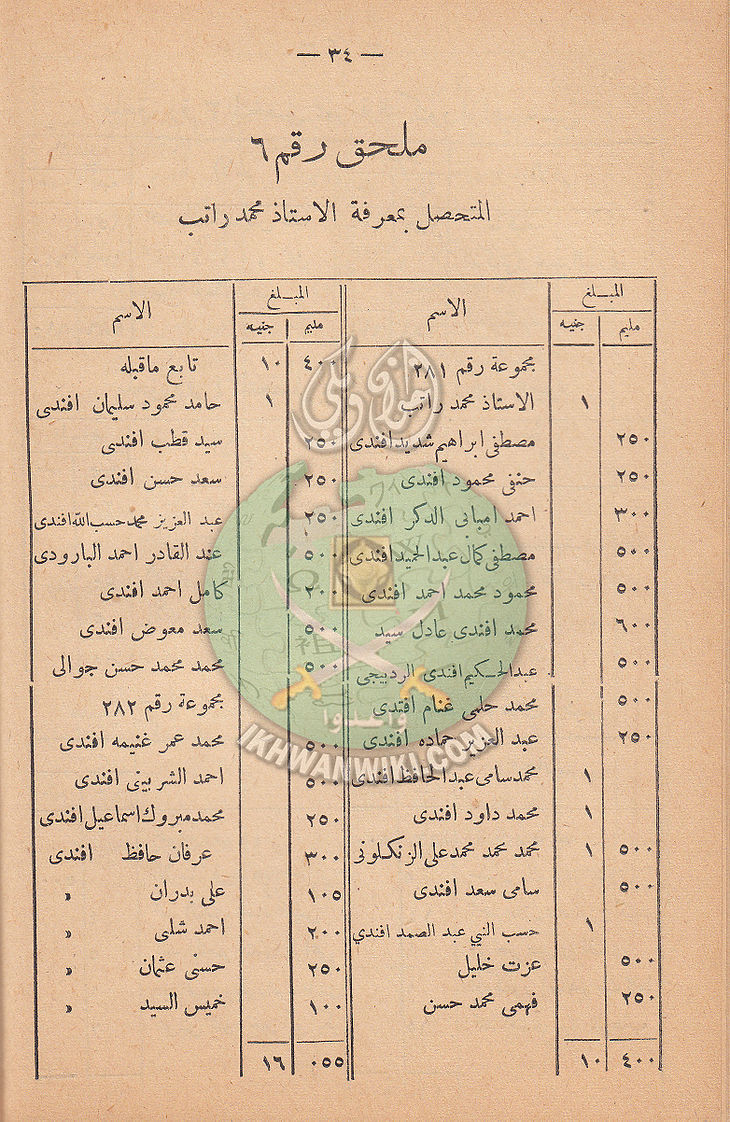 — ٣٤ —
ملحق رقم ٦
المتحصل بمعرفة الاستاذ محمد راتب
المبلغ الاسم
مليم جنيه
مجموعة رقم ٢٨١
١ الاستاذ محمد راتب
٢٥٠ مصطفى ابراهيم شديد افندى
٢٥٠ حنفى محمود افندى
٣٠٠ احمد امبابى الدكر افندى
٥٠٠ مصطفى كمال عبد الحميد افندى
٥٠٠ محمود محمد احمد افندى
٦٠٠ محمد افندى عادل سيد
٥٠٠ عبد الحكيم افندى الرديجى
٥٠٠ محمد حلمى غنام افندى
٢٥٠ عبد العزيز حماده افندى
١ محمد سامى عبد الحافظ افندى
١ محمد داود افندى
٥٠٠ ١ محمد محمد محمد على الزنكلونى
٥٠٠ سامى سعد افندى
١ حسب النبي عبد الصمد افندي
٥٠٠ عزت خليل
٢٥٠ فهمى محمد حسن
٤٠٠ ١٠
المبلغ الاسم
مليم جنيه
٤٠٠ ١٠ تابع ماقبله
١ حامد محمود سليمان افندى
٢٥٠ سيد قطب افندى
٢٥٠ سعد حسن افندى
٢٥٠ عبد العزيز محمد حسب الله افندى
٥٠٠ عبد القادر احمد البارودى
٢٠٠ كامل احمد افندى
٥٠٠ سعد معوض افندى
٥٠٠ محمد محمد حسن جوالى
مجموعة رقم ٢٨٢
٥٠٠ محمد عمر غنيمه افندى
٥٠٠ احمد الشربينى افندى
٢٥٠ محمد مبروك اسماعيل افندى
٣٠٠ عرفان حافظ افندى
١٠٥ على بدران »
٢٠٠ احمد شلبى »
٢٥٠ حسنى عثمان »
١٠٠ خميس السيد »
٠٥٥ ١٦
إخوان ويكي
وأعدوا
IKHWANWIKI.COM